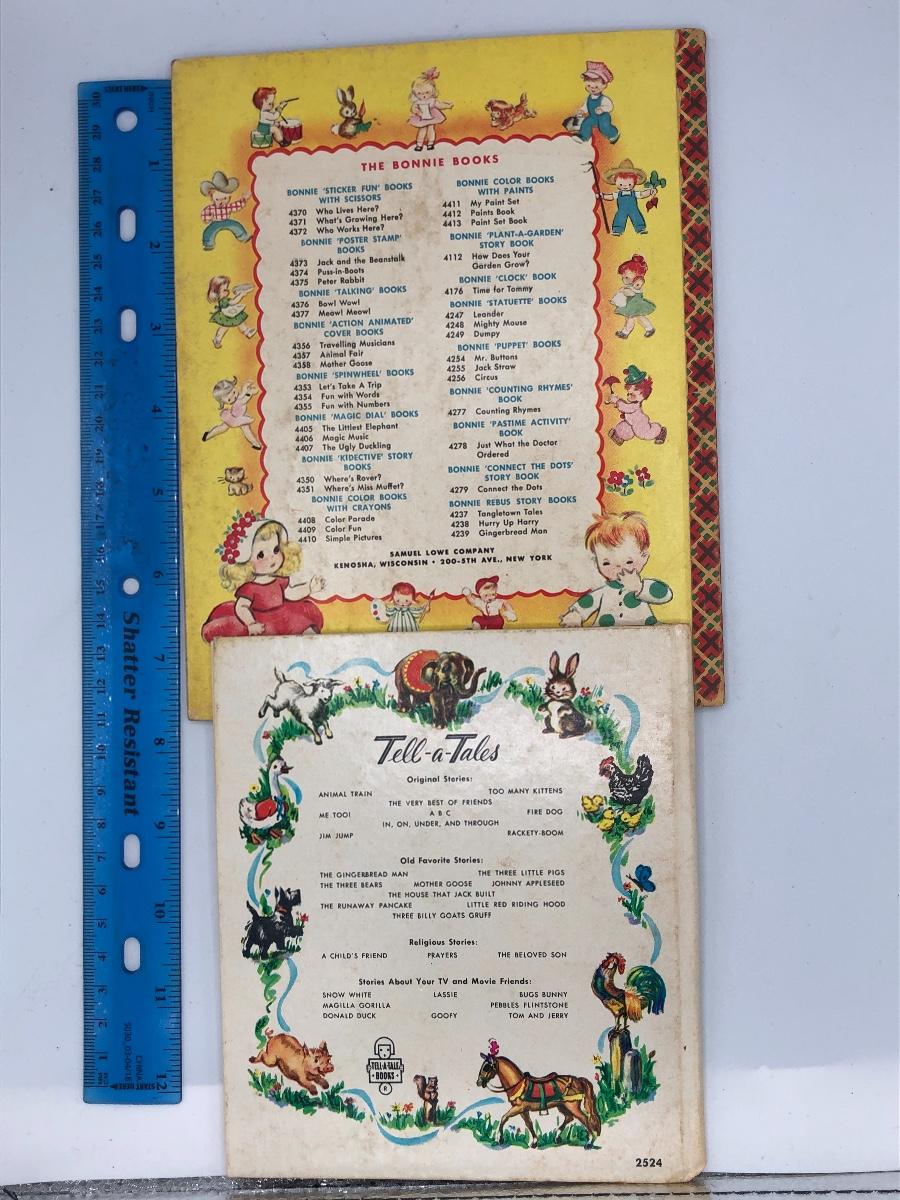 THE BONNIE BOOKS
BONNIE 'STICKER FUN' BOOKS
WITH SCISSORS
4370 Who Lives Here?
4371 What's Growing Here?
4372 Who Works Here?
BONNIE 'POSTER STAMP'
BOOKS
4373 Jack and the Beanstalk
4374 Puss-in-Boots
4375 Peter Rabbit
BONNIE 'TALKING' BOOKS
4376 Bow! Wow!
4377 Meow! Meow!
BONNIE 'ACTION ANIMATED'
COVER BOOKS
4356 Travelling Musicians
4357 Animal Fair
4358 Mother Goose
BONNIE 'SPINWHEEL' BOOKS
4353 Let's Take A Trip
4354 Fun with Words
4355 Fun with Numbers
BONNIE 'MAGIC DIAL' BOOKS
4405 The Littlest Elephant
4406 Magic Music
4407 The Ugly Duckling
BONNIE 'KIDECTIVE' STORY
BOOKS
4350 Where's Rover?
4351 Where's Miss Muffet?
BONNIE COLOR BOOKS
WITH CRAYONS
4408 Color Parade
4409 Color Fun
4410 Simple Pictures
BONNIE COLOR BOOKS
WITH PAINTS
4411 My Paint Set
4412 Paints Book
4413 Paint Set Book
BONNIE 'PLANT-A-GARDEN'
STORY BOOK
4112 How Does Your
Garden Grow?
BONNIE 'CLOCK' BOOK
4176 Time for Tommy
BONNIE 'STATUETTE' BOOKS
4247 Leander
4248 Mighty Mouse
4249 Dumpy
BONNIE 'PUPPET' BOOKS
4254 Mr. Buttons
4255 Jack Straw
4256 Circus
BONNIE 'COUNTING RHYMES'
BOOK
4277 Counting Rhymes
BONNIE 'PASTIME ACTIVITY'
BOOK
4278 Just What the Doctor
Ordered
BONNIE 'CONNECT THE DOTS'
STORY BOOK
4279 Connect the Dots
BONNIE REBUS STORY BOOKS
4237 Tangletown Tales
4238 Hurry Up Harry
4239 Gingerbread Man
SAMUEL LOWE COMPANY
KENOSHA, WISCONSIN • 200-5TH AVE., NEW YORK
Tell-a-Tales
Original Stories:
ANIMAL TRAIN TOO MANY KITTENS
THE VERY BEST OF FRIENDS
ME TOO! A B C FIRE DOG
IN, ON, UNDER, AND THROUGH
JIM JUMP RACKETY-BOOM
Old Favorite Stories:
THE GINGERBREAD MAN THE THREE LITTLE PIGS
THE THREE BEARS MOTHER GOOSE JOHNNY APPLESEED
THE HOUSE THAT JACK BUILT
THE RUNAWAY PANCAKE LITTLE RED RIDING HOOD
THREE BILLY GOATS GRUFF
Religious Stories:
A CHILD'S FRIEND PRAYERS THE BELOVED SON
Stories About Your TV and Movie Friends:
SNOW WHITE LASSIE BUGS BUNNY
MAGILLA GORILLA PEBBLES FLINTSTONE
DONALD DUCK GOOFY TOM AND JERRY
TELL-A-TALE
BOOKS
R
2524
Shatter Resistant
1
2
3
4
5
6
7
8
9
10
11
12
30
29
28
27
26
25
24
23
22
21
20
19
18
17
16
15
14
13
12
11
10
9
8
7
6
5
4
3
2
1
START HERE
CHINA